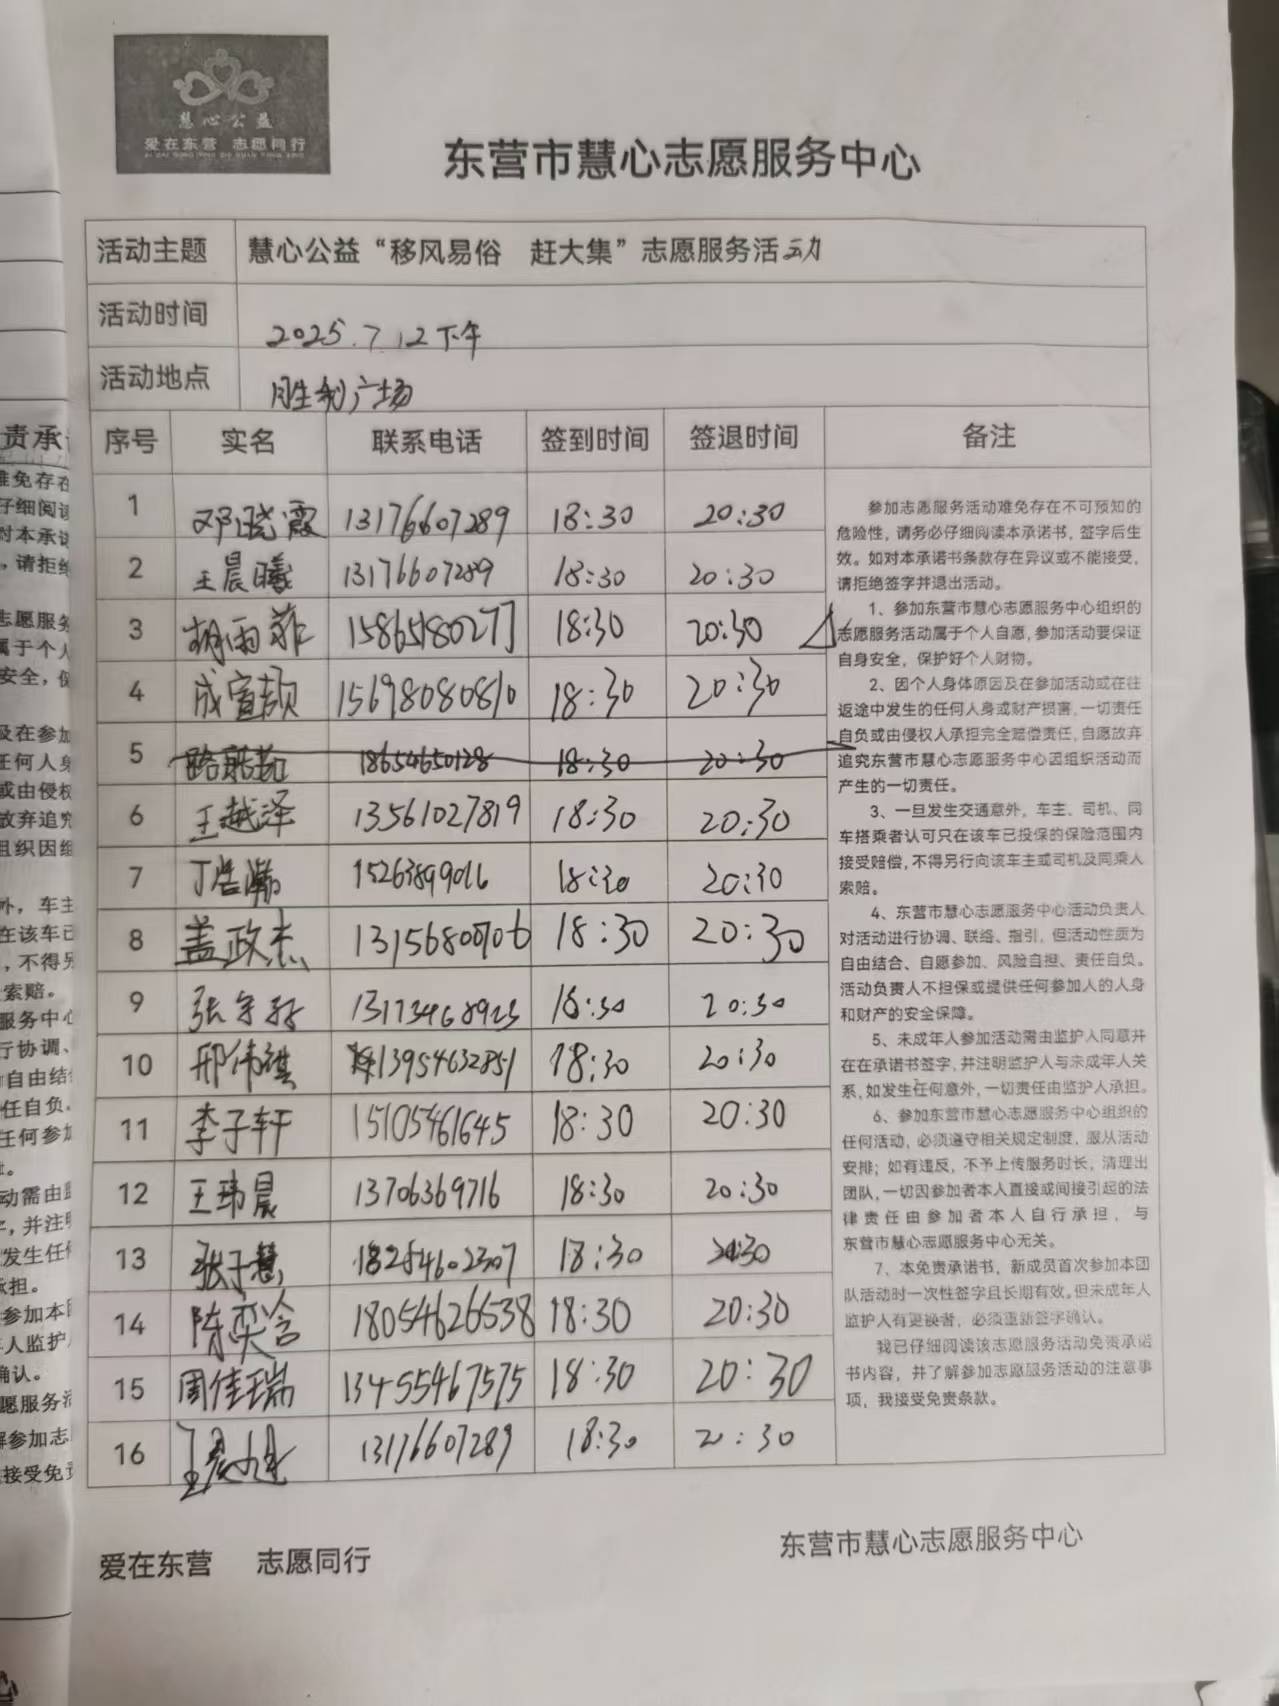 慧心公益
爱在东营 志愿同行
东营市慧心志愿服务中心
活动主题 慧心公益“移风易俗 赶大集”志愿服务活动
活动时间 2025.7.12下午
活动地点 胜利广场
序号 实名 联系电话 签到时间 签退时间 备注
1 邓晓霞 13176607289 18:30 20:30
2 王晨曦 13176607289 18:30 20:30
3 胡雨菲 15865180277 18:30 20:30
4 成宣颉 15698080810 18:30 20:30
5 18654650128 18:30 20:30
6 王越泽 13561027819 18:30 20:30
7 丁浩瀚 15263899016 18:30 20:30
8 盖政杰 18:30 20:30
9 张宇轩 13173468923 18:30 20:30
10 邢伟祺 13954632851 18:30 20:30
11 李子轩 15105461645 18:30 20:30
12 王玮晨 13706369716 18:30 20:30
13 张子慧 18254602307 18:30 20:30
14 陈奕含 18054626538 18:30 20:30
15 周佳瑞 13455467575 18:30 20:30
16 13176607289 18:30 20:30
参加志愿服务活动难免存在不可预知的
危险性，请务必仔细阅读本承诺书，签字后生
效。如对本承诺书条款存在异议或不能接受，
请拒绝签字并退出活动。
1、参加东营市慧心志愿服务中心组织的
志愿服务活动属于个人自愿，参加活动要保证
自身安全，保护好个人财物。
2、因个人身体原因及在参加活动或在往
返途中发生的任何人身或财产损害，一切责任
自负或由侵权人承担完全赔偿责任，自愿放弃
追究东营市慧心志愿服务中心因组织活动而
产生的一切责任。
3、一旦发生交通意外，车主、司机、同
车搭乘者认可只在该车已投保的保险范围内
接受赔偿，不得另行向该车主或司机及同乘人
索赔。
4、东营市慧心志愿服务中心活动负责人
对活动进行协调、联络、指引，但活动性质为
自由结合、自愿参加、风险自担、责任自负。
活动负责人不担保或提供任何参加人的人身
和财产的安全保障。
5、未成年人参加活动需由监护人同意并
在在承诺书签字，并注明监护人与未成年人关
系，如发生任何意外，一切责任由监护人承担。
6、参加东营市慧心志愿服务中心组织的
任何活动，必须遵守相关规定制度，服从活动
安排；如有违反，不予上传服务时长，清理出
团队，一切因参加者本人直接或间接引起的法
律责任由参加者本人自行承担，与
东营市慧心志愿服务中心无关。
7、本免责承诺书，新成员首次参加本团
队活动时一次性签字且长期有效。但未成年人
监护人有更换者，必须重新签字确认。
我已仔细阅读该志愿服务活动免责承诺
书内容，并了解参加志愿服务活动的注意事
项，我接受免责条款。
爱在东营 志愿同行
东营市慧心志愿服务中心